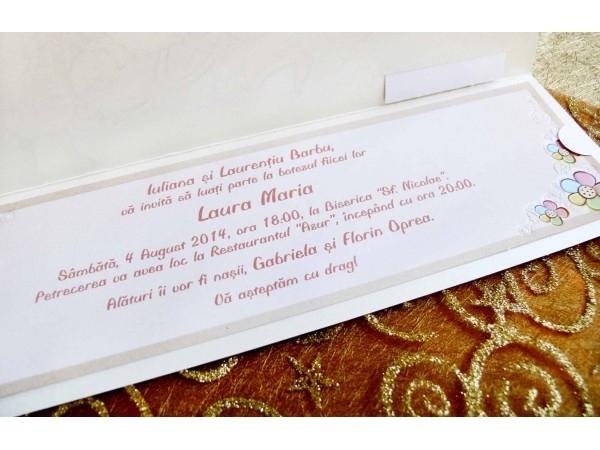 Iuliana și Laurențiu Barbu,
vă invită să luați parte la botezul fiicei lor
Laura Maria
Sâmbătă, 4 August 2014, ora 18:00, la Biserica "Sf. Nicolae".
Petrecerea va avea loc la Restaurantul "Azur", începând cu ora 20:00.
Alături îi vor fi nașii, Gabriela și Florin Oprea.
Vă așteptăm cu drag!